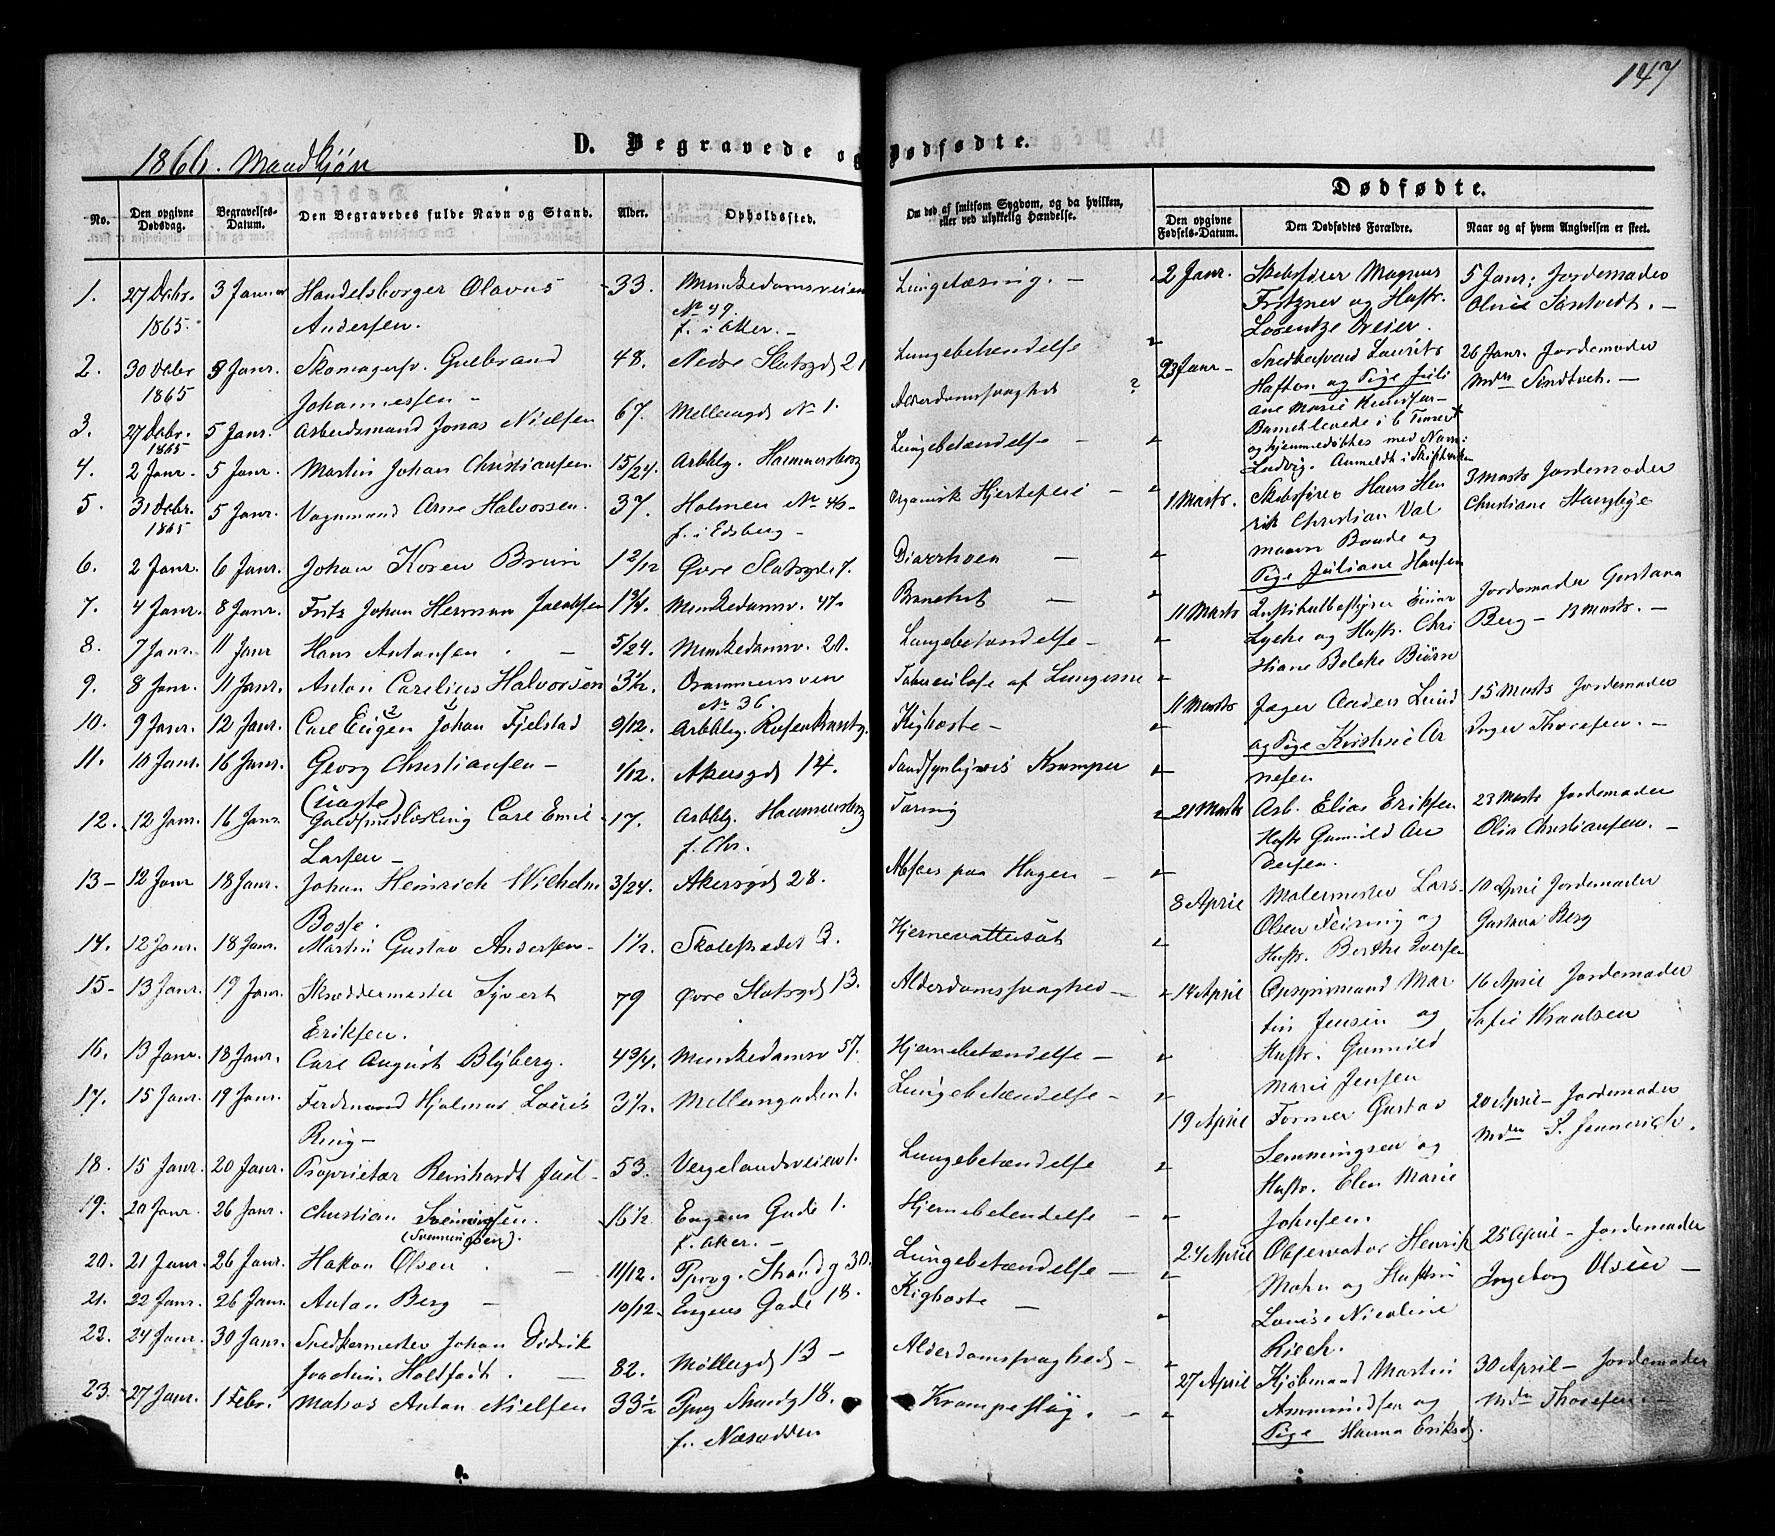 147
1866. Mandkjøn
D. Begravede og Dødfødte.
No.
Den opgivne Dødsdag.
Begravelses-Datum.
Den Begravedes fulde Navn og Stand.
Alder.
Opholdssted.
Om død af smitsom Sygdom, og da hvilken, eller ved ulykkelig Hændelse.
Dødfødte.
Den opgivne Fødsels-Datum.
Den Dødfødtes Forældre.
Naar og af hvem Angivelsen er skeet.
1. 27 Decbr. 3 Januar Handelsborger Olavus 33. Munkedamsveien
1865. Andersen. No 99.
f. i Aker. –
Lungetæring. –
2. 30 Decbr 3 Janr. Skomagersv. Gulbrand 48. Nedre Slotsgd 21
1865 Johannessen – Lungebetændelse
3. 27 Decbr. 5 Janr. Arbeidsmand Jonas Nielsen 67. Mellemgd No 1. Alderdomssvaghed ?
1865
4. 2 Janr. 5 Janr. Martin Johan Christiansen 15/24. Arbblg. Hammersborg Lungebetændelse
5. 31 Decbr. 5 Janr. Vognmand Arne Halvorsen. 37. Holmen No 46 – Organisk Hjertefeil –
1865 f. i Edsberg –
6. 2 Janr. 6 Janr. Johan Koren Bruun 1 2/12 Øvre Slotsgd 7. Diarrhoea –
7. 4 Janr. 8 Janr. Fritz Johan Herman Jacobsen 1 3/4. Munkedamsv. 47. –
8. 7 Janr. 11 Janr Hans Antonsen – 5/24. Munkedamsv. 20. Lungebetændelse –
9. 8 Janr. 11 Janr. Anton Carelius Halvorsen 3 1/2. Drammensvein Tuberculose af Lungerne
No 36.
10. 9 Janr. 12 Janr. Carl Eugen Johan Fjelstad 9/12. Arbblg. Rosenkrantzg. Kighoste –
11. 10 Janr. 16 Janr. Georg Christiansen – 1/12. Akersgd 14. Sandsynligvis Kramper
(uægte)
12. 12 Janr. 16 Janr. Guldsmedlærling Carl Emil 17. Arbblg. Hammersborg Tæring
Larsen – f. Chr.
13 – 12 Janr 18 Janr. Johan Heinrich Wilhelm 3/24. Akersgd 28. Absces paa Hagen –
Bosse.
14. 12 Janr. 18 Janr. Martin Gustav Andersen – 1 1/2. Skolestrædet 3. Hjernevattersot
15 – 13 Janr. 19 Janr. Skræddermester Syvert 79 Øvre Slotsgd 13. Alderdomssvaghed –
Eriksen.
16. 13 Janr. 18 Janr. Carl August Blyberg. 4 3/4. Munkedamsv 57. Hjernebetændelse –
17. 15 Janr. 19 Janr. Ferdinand Hjalmar Louis 3 1/2. Mellemgaden 1. Lungebetændelse –
Ring –
18. 15 Janr. 20 Janr. Proprietær Reinhardt Juel – 53. Vergelandsveien 1. Lungebetændelse
19. 20 Janr. 26 Janr. Christian Svenningsen. 16 1/2. Engens Gade 1. Hjernebetændelse –
(Svenningsen). f. Aker. –
20. 21 Janr. 26 Janr. Hakon Olsen – 11/12. Pprvg. Strandg 30. Lungebetændelse –
21. 22 Janr. 26 Janr. Anton Berg – 10/12. Engens Gade 18. Kighoste –
22. 24 Janr. 30 Janr. Snedkermester Johan Didrik
Joachim Holtfodt. – 82. Møllergd 13 – Alderdomssvaghed –
23. 27 Janr. 1 Febr. Matros Anton Nielsen 33 1/2 Pprvg Strandg 18. Krampeslag. –
f. Næsodden
2 Janr. Skibsfører Magnus 5 Janr. Jordemoder
Fritzner og Hustr. Olvie Sandvedt. –
Lorentze Dreier.
23 Janr – Snedkersvend Laurits 26 Janr. Jordemoder
Hafton og Pige Juli Mdm Sindtveh. –
ane Marie Knudsdr
Barnet levede i 6 Timer
og hjemmedøbtes med Navn:
Ludvig. Anmeldt i Skiftretten
1 Marts. Skibsfører Hans Hen 3 Marts Jordemoder
rik Christian Val Christiane Stangbye
mann Baade og
Pige Juliane Hansen
11 Marts Institutbestyrer Einar Jordemoder Gustava
Lyche og Hustr. Chri Berg – 13 Marts. –
stiane Bolette Biørn
11 Marts Jæger Anders Lund 15 Marts Jordemoder
og Pige Kristine Ar Inger Thoresen. –
nesen
21 Marts Arb. Elias Eriksen 23 Marts Jordemoder
Hustr Gunnild An Olia Christiansen. –
dersen.
8 April Malermester Lars 10 April Jordemoder
Olsen Feiring og Gustava Berg
Hustr. Berthe Iversen
14 April Opsynsmand Mar 16 April Jordemoder
tin Jensen og Sofie Knudsen
Hustr. Gunnild
Marie Jensen
19 April Former Gustav 20 April – Jordemoder
Semmingsen og Mdm S. Jennerich.
Hustr. Elen Marie
Johnsen.
24 April Observator Henrik 25 April – Jordemoder
Mohn og Hustru Ingeborg Olsen –
Louise Nicoline
Rieck.
27 April Kjøbmand Martin 30 April – Jordemoder
Ammundsen og Mdm Thoresen. –
Pige Hanna Eriksd.